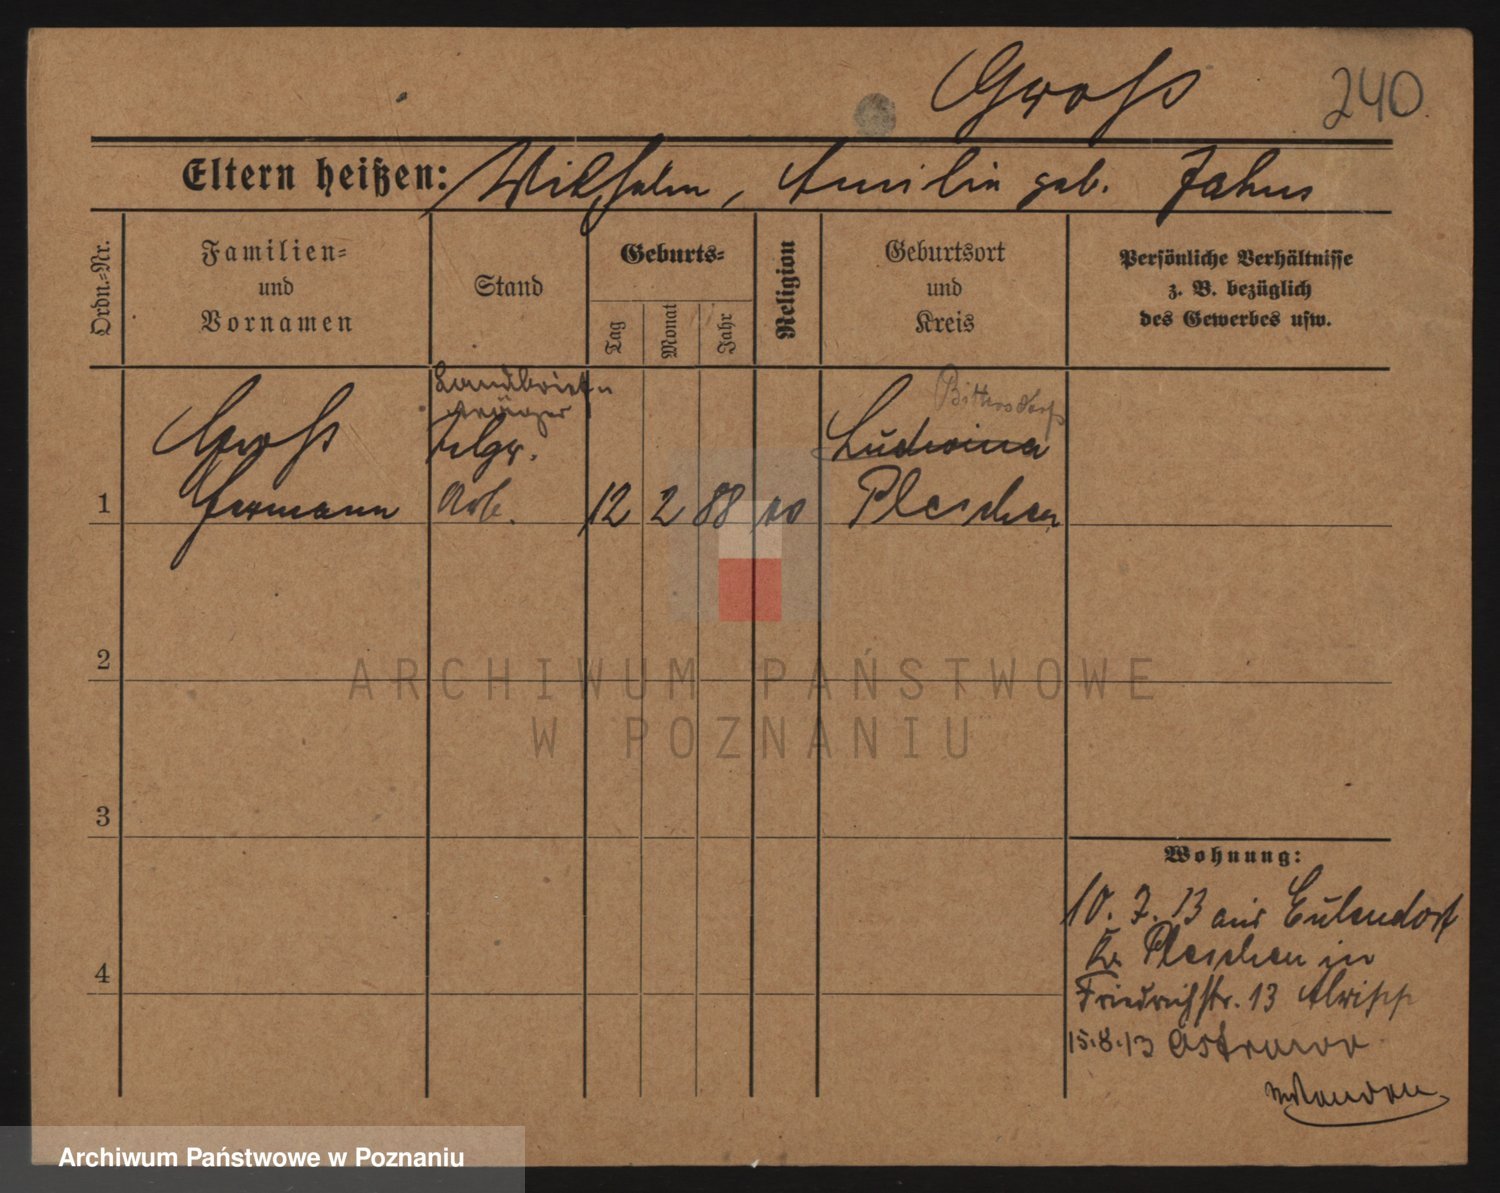 Groß 240.
Eltern heißen: Wilhelm, Emilie geb. Jahns
Ordn.-Nr.
Familien-
und
Vornamen
Stand
Geburts-
Tag
Monat
Jahr
Religion
Geburtsort
und
Kreis
Persönliche Verhältnisse
z. B. bezüglich
des Gewerbes usw.
Landbrief
träger
Groß
Telgr.
Bittersdorf
Ludwina
1 Hermann Arb. 12 2 88 Pleschen
2
3
4
Wohnung:
10. 7. 13 aus Eulendorf
Kr. Pleschen in
Friedrichstr. 13
15.8.13 Ostrowo
ARCHIWUM PAŃSTWOWE
W POZNANIU
Archiwum Państwowe w Poznaniu